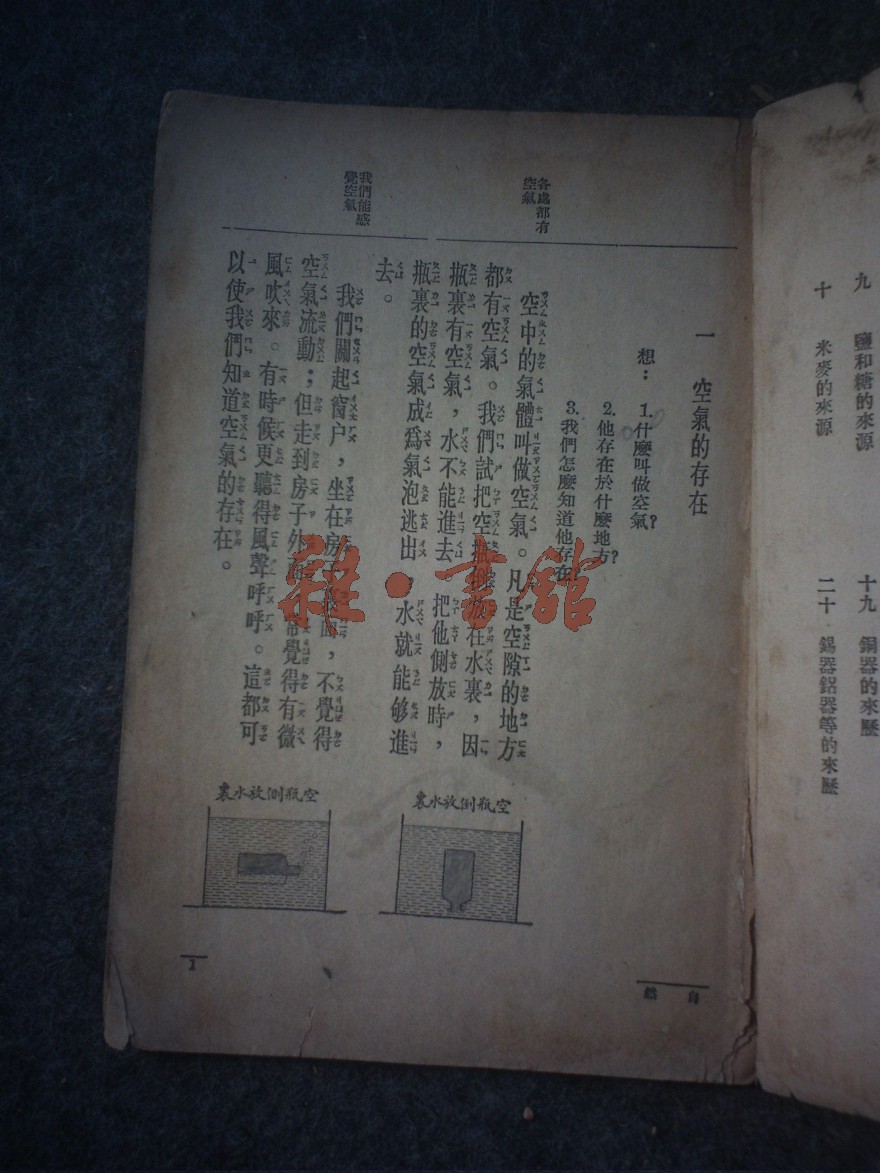 九　鹽和糖的來源
十　米麥的來源
十九　銅器的來歷
二十　錫器鋁器等的來歷
自然
一　空氣的存在
想：1.什麼叫做空氣？
2.他存在於什麼地方？
3.我們怎麼知道他存在
各處都有
空氣
空中的氣體叫做空氣。凡是空隙的地方
都有空氣。我們試把空瓶倒放在水裏，因
瓶裏有空氣，水不能進去　把他側放時，
瓶裏的空氣成爲氣泡逃出，水就能够進
去。
我們能感
覺空氣
我們關起窗户，坐在房子裏面，不覺得
空氣流動；但走到房子外面　常覺得有微
風吹來。有時候更聽得風聲呼呼。這都可
以使我們知道空氣的存在。
空瓶倒放水裏
空瓶側放水裏
1
雜·書館